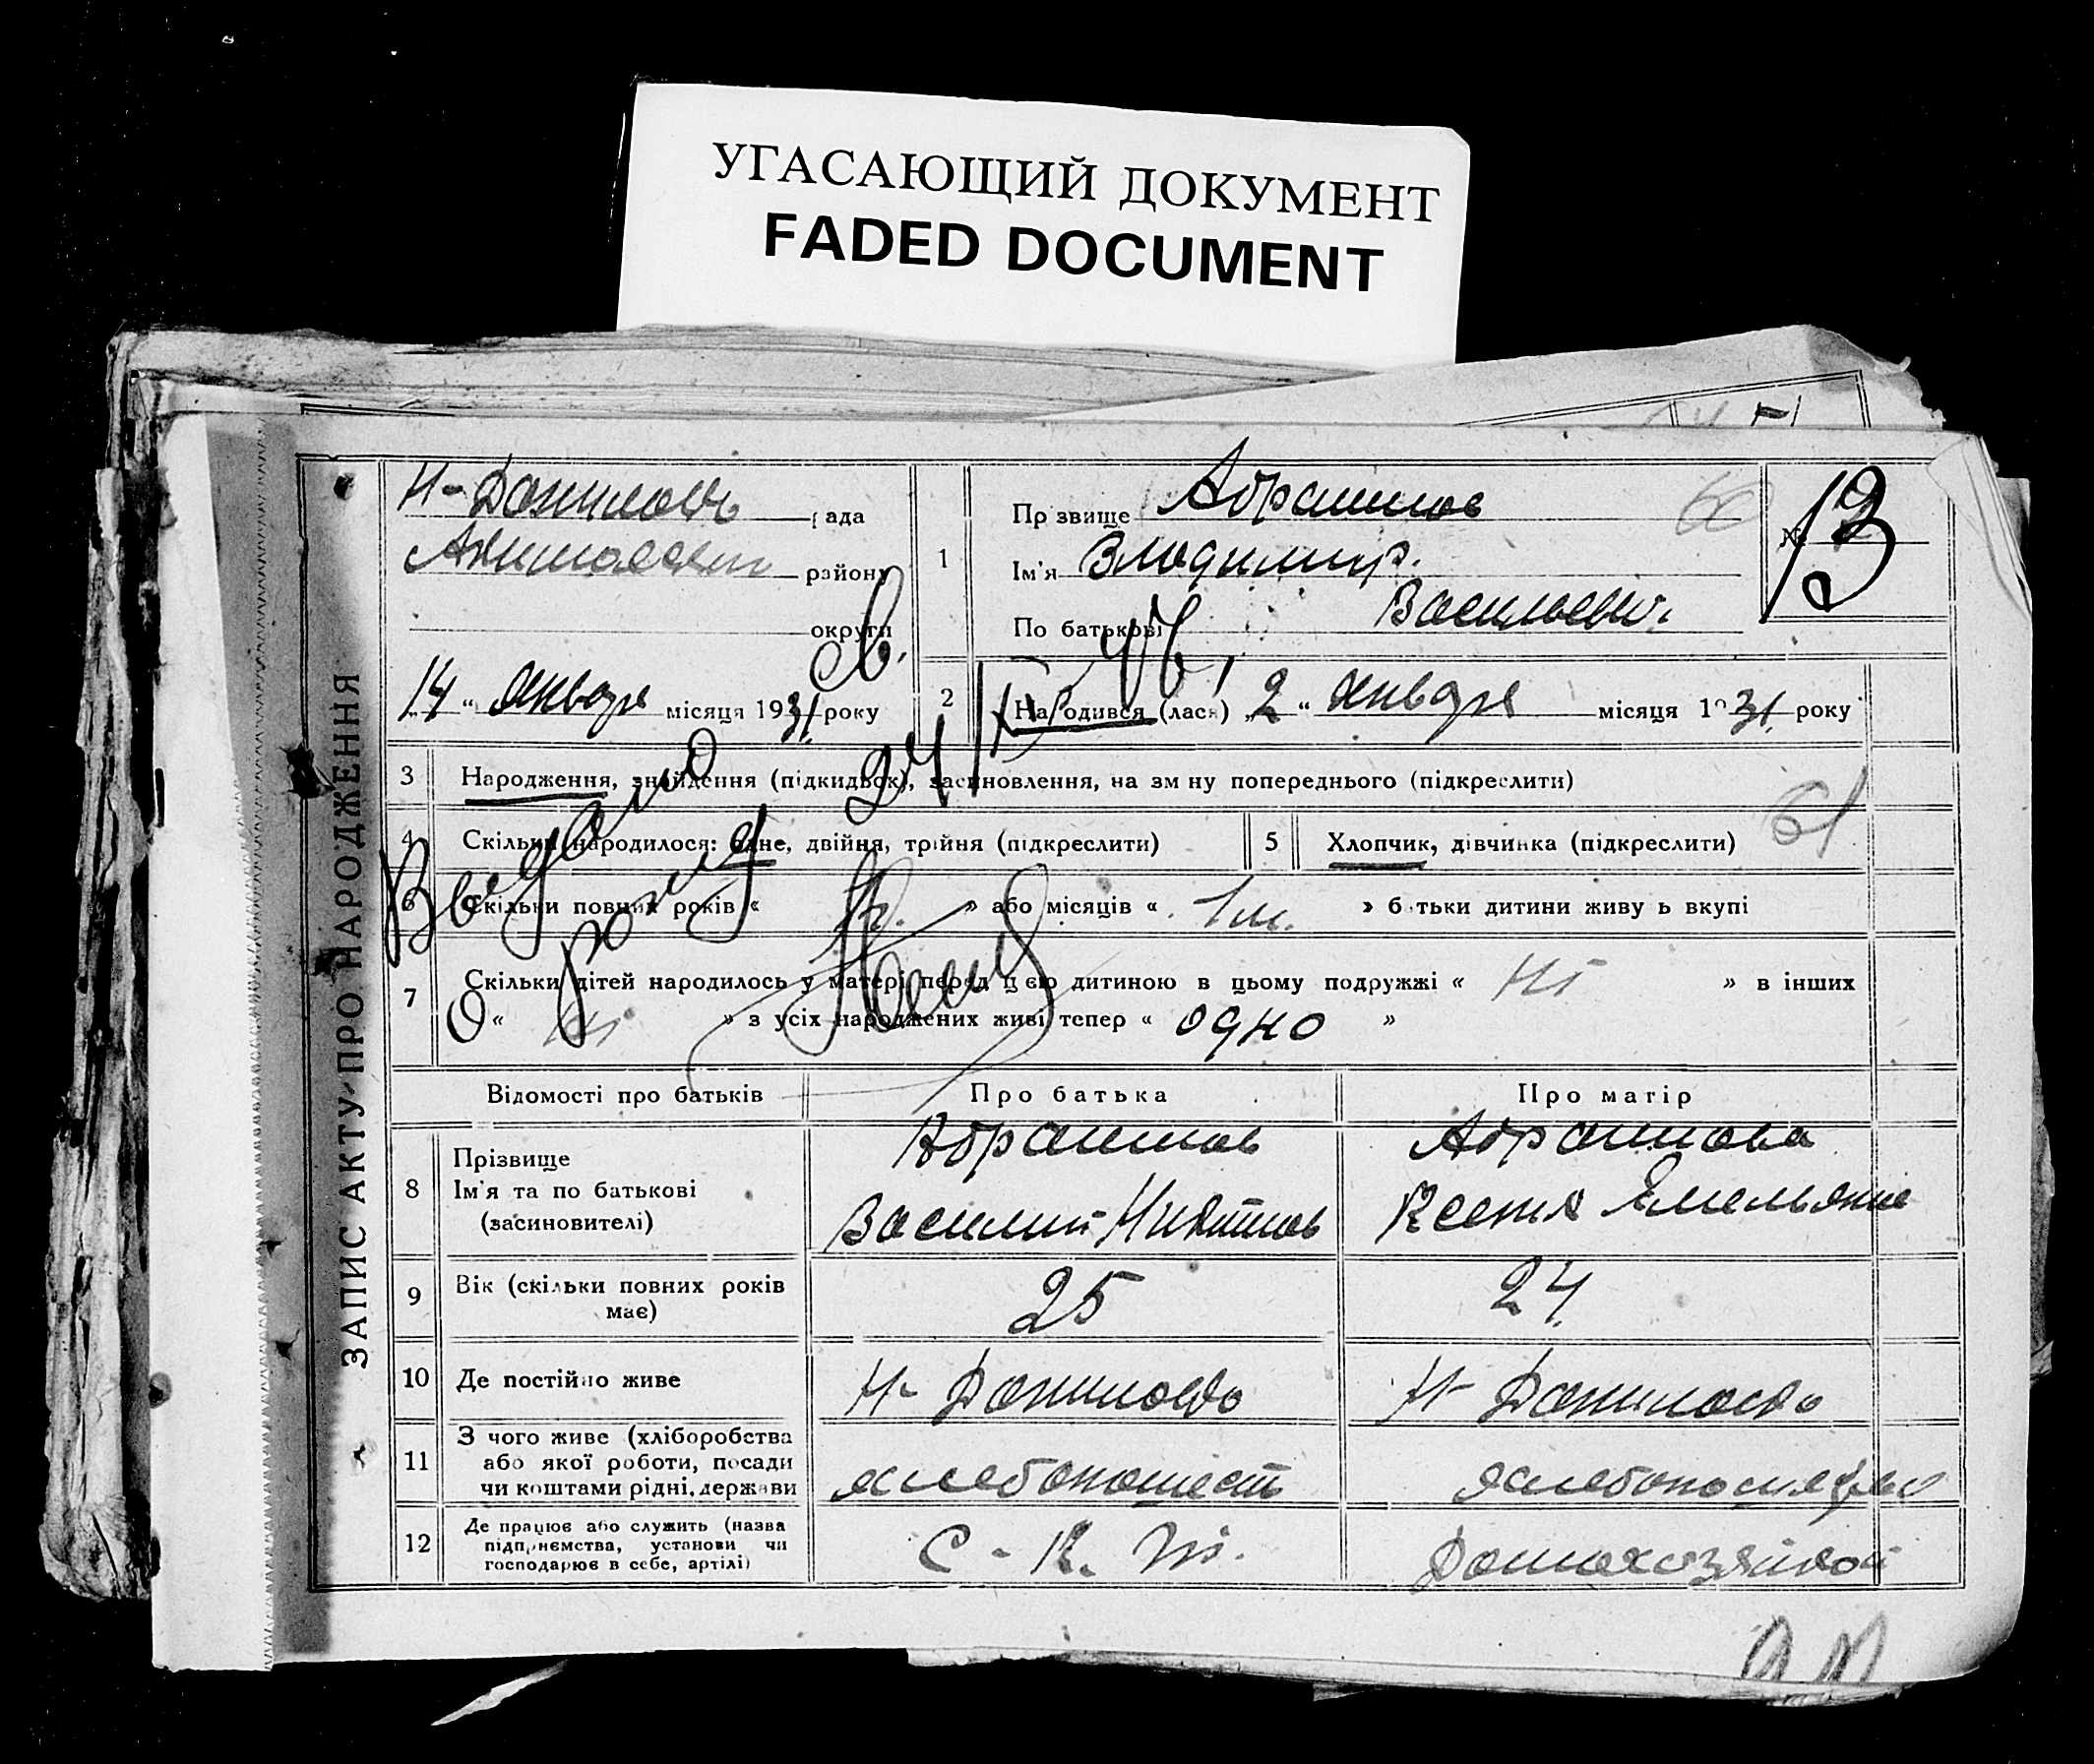 УГАСАЮЩИЙ ДОКУМЕНТ
FADED DOCUMENT
ЗАПИС АКТУ ПРО НАРОДЖЕННЯ
Н-Даниловк рада
району
округи
„14“ января місяця 1931 року
1
Прізвище Абрамов
Ім'я Владимир.
По батькові Васильевич.
№ 13
60
2 Народився (лася) „2“ января місяця 1931 року
3 Народження, знайдення (підкидьок), засиновлення, на зміну попереднього (підкреслити)
4 Скільки народилося: одне, двійня, трійня (підкреслити)
5 Хлопчик, дівчинка (підкреслити)
61
6 Скільки повних років « » або місяців « 1 м. » батьки дитини живуть вкупі
7 Скільки дітей народилось у матері перед цією дитиною в цьому подружжі « Ні » в інших
« Ні » з усіх народжених живі тепер « одно »
Выдано
Відомості про батьків Про батька Про матір
8 Прізвище Абрамов Абрамова
Ім'я та по батькові
(засиновителі) Василий Никитов Ксения Емельянов
9 Вік (скільки повних років
має) 25 24
10 Де постійно живе Н-Даниловко Н-Даниловко
11 З чого живе (хліборобства
або якої роботи, посади
чи коштами рідні, держави хлебопашест
12 Де працює або служить (назва
підприємства, установи чи
господарює в себе, артілі) С-К. Домохозяйкой